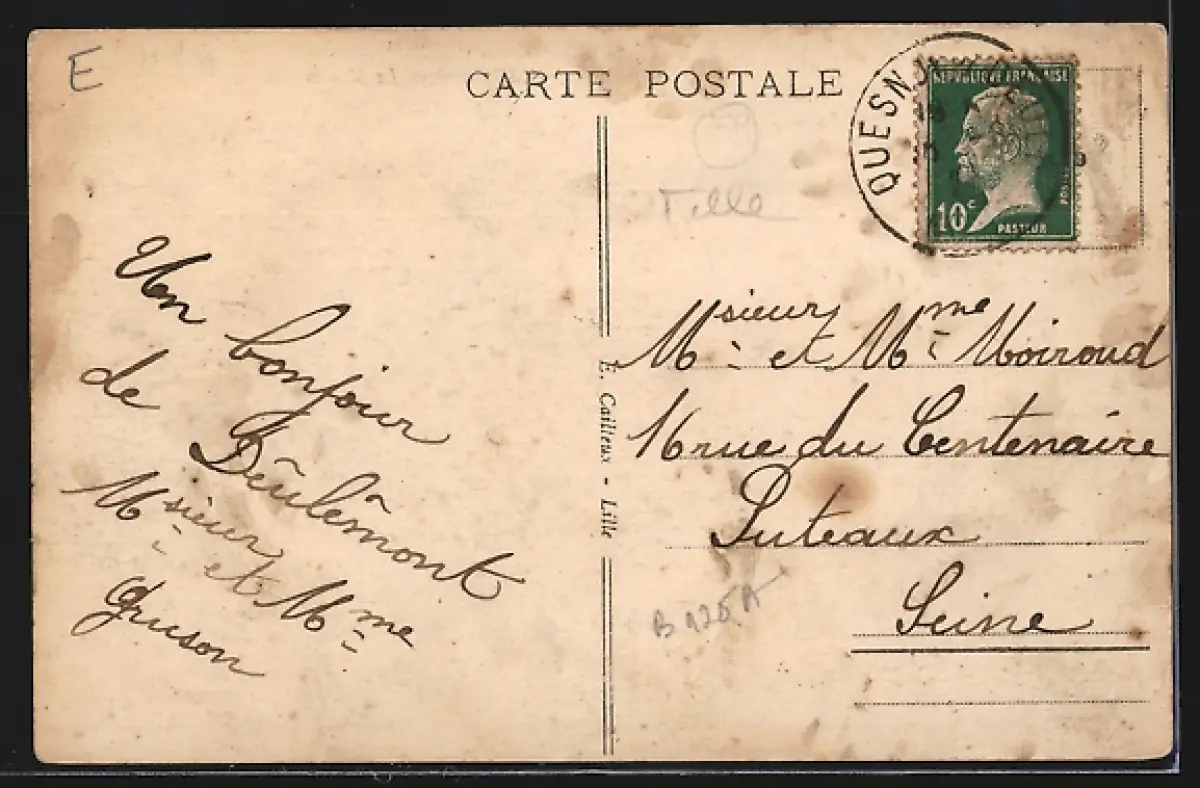 E
CARTE POSTALE
QUESN
REPUBLIQUE FRANÇAISE
POSTES
10c
PASTEUR
Un bonjour
de Dêulêmont
Msieur et Mme
Gruson
E. Cailteux - Lille
Msieur et Mme Moiroud
rue du Centenaire
Puteaux
Seine
B 125 A